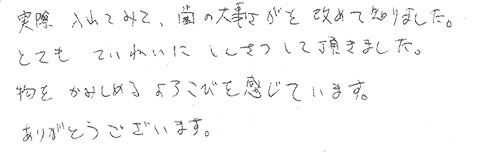 実際 入れてみて、歯の大事さがを 改めて知りました。
とても ていねいに しんさつして頂きました。
物を かみしめる よろこびを感じています。
ありがとうございます。